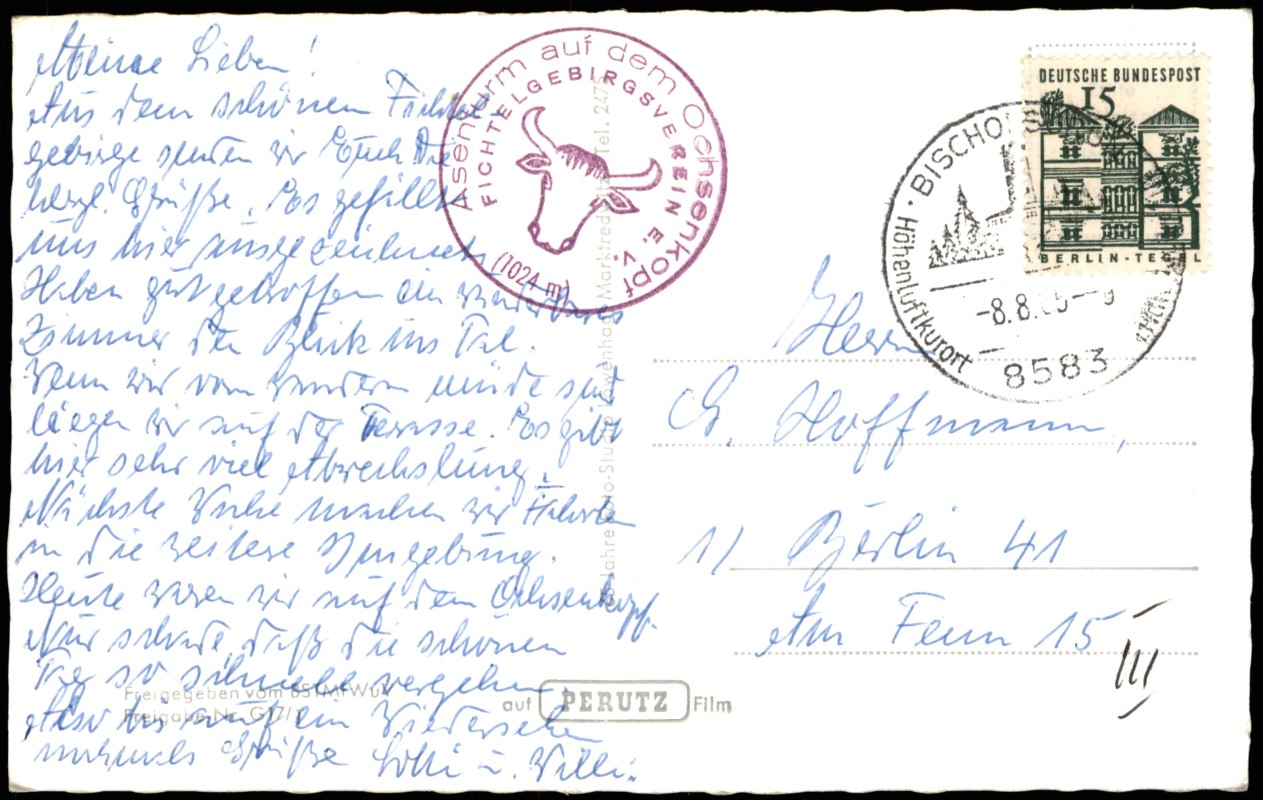 Meine Lieben!
Aus dem schönen Fichtel
gebirge senden wir Euch die
herzl. Grüße. Es gefällt
uns hier ausgezeichnet.
Haben gut getroffen ein wunderbares
Zimmer den Blick ins Tal.
Wenn wir vom wandern müde sind
liegen wir auf der Terasse. Es gibt
hier sehr viel Abwechslung.
Nächste Woche machen wir Fahrten
in die weitere Umgebung.
Heute waren wir auf dem Ochsenkopf.
Nur schade, daß die schönen
Tage so schnell vergehen.
Also bis auf ein Wiedersehen
nochmals Grüße Lotti u. Willi.
Freigegeben vom BSTMfWuV
Freigabe Nr. G17/
Asenturm auf dem Ochsenkopf
FICHTELGEBIRGSVEREIN E.V.
(1024 m)
Marktredwitz, Tel. 2475
auf PERUTZ Film
DEUTSCHE BUNDESPOST
15
BERLIN-TEGEL
BISCHO
Höhenluftkurort
-8.8.65-9
8583
Herrn
G. Hoffmann,
1/ Berlin 41
Am Fenn 15
III